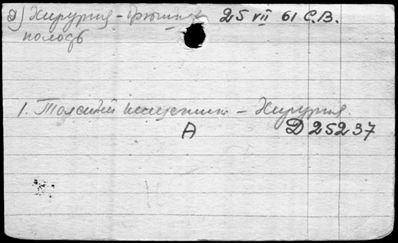 а) Хирургия - брюшная 25 VII 61 С.В.
полость
1. Толстый кишечник - Хирургия
А Д 25237